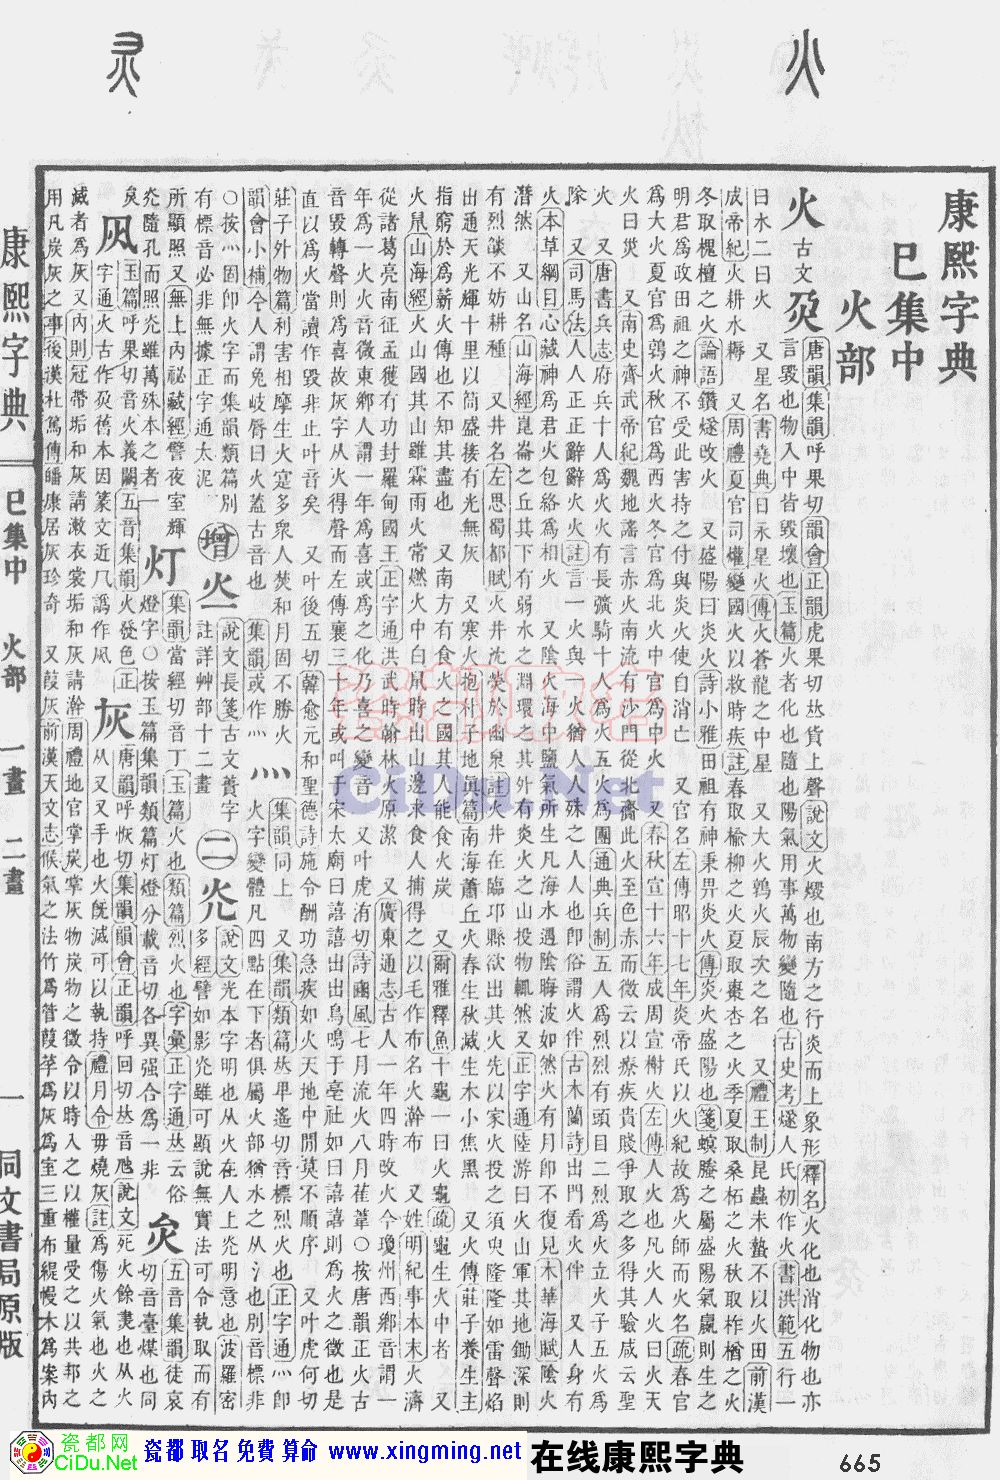 火
灵
康熙字典
巳集中
火部
火 古文 𤆄 唐韻集韻呼果切韻會正韻虎果切𠀤貨上聲說文火燬也南方之行炎而上象形釋名火化也消化物也亦
言毀也物入中皆毀壞也玉篇火者化也隨也陽氣用事萬物變隨也古史考燧人氏初作火書洪範五行一
曰水二曰火 又星名書堯典日永星火傳火蒼龍之中星 又大火鶉火辰次之名 又禮王制昆蟲未蟄不以火田前漢
成帝紀火耕水耨 又周禮夏官司爟變國火以救時疾註春取楡柳之火夏取棗杏之火季夏取桑柘之火秋取柞楢之火
冬取槐檀之火論語鑽燧改火 又盛陽曰炎火詩小雅田祖有神秉畀炎火傳炎火盛陽也箋螟螣之屬盛陽氣嬴則生之
明君爲政田祖之神不受此害持之付與炎火使自消亡 又官名左傳昭十七年炎帝氏以火紀故爲火師而火名疏春官
爲大火夏官爲鶉火秋官爲西火冬官爲北火中官爲中火 又春秋宣十六年成周宣榭火左傳人火也凡火人火曰火天
火曰災 又南史齊武帝紀魏地謠言赤火南流有沙門從北齎此火至色赤而微云以療疾貴賤爭取之多得其驗咸云聖
火 又唐書兵志府兵十人爲火火有長彍騎十人爲火五火爲團通典兵制五人爲烈烈有頭目二烈爲火立火子五火爲
隊 又司馬法人人正正辭辭火火註言一火與一火猶人人殊之人人也卽俗謂火伴古木蘭詩出門看火伴 又人身有
火本草綱目心藏神爲君火包絡爲相火 又陰火海中鹽氣所生凡海水遇陰晦波如然火有月卽不復見木華海賦陰火
潛然 又山名山海經崑崙之丘其下有弱水之淵環之其外有炎火之山投物輒然又正字通陸游曰火山軍其地鋤深則
有烈燄不妨耕種 又井名左思蜀都賦火井沈熒於幽泉註火井在臨邛縣欲出其火先以家火投之須臾隆隆如雷聲焰
出通天光輝十里以筒盛接有光無灰 又寒火抱朴子地眞篇南海蕭丘火春生秋滅生木小焦黑 又火傳莊子養生主
指窮於爲薪火傳也不知其盡也 又南方有食火之國其人能食火炭 又爾雅釋魚十龜一曰火龜疏龜生火中者 又
火鼠山海經火山國其山雖霖雨火常燃火中白鼠時出山邊求食人捕得之以毛作布名火澣布 又姓明紀事本末火濟
從諸葛亮南征孟獲有功封羅甸國王正字通洪武時翰林火原潔 又廣東通志古人一年四時改火今瓊州西鄉音謂一
年爲一火火音微東鄕人謂一年爲喜或爲之化乃喜之變音 又叶虎洧切詩豳風七月流火八月萑葦〇按唐韻正火古
音毀轉聲則爲喜故灰字从火得聲而左傳襄三十年或叫于宋太廟曰譆譆出出鳥鳴于亳社如曰譆譆則爲火之徵也是
直以爲火當讀作毀非止叶音矣 又叶後五切韓愈元和聖德詩施令酬功急疾如火天地中閒莫不順序 又叶虎何切
莊子外物篇利害相摩生火寔多衆人焚和月固不勝火 灬 集韻同上 又集韻類篇𠀤卑遙切音標烈火也正字通灬卽
火字變體凡四點在下者俱屬火部猶水之从氵也別音標非
〇按灬固卽火字而集韻類篇別
有標音必非無據正字通太泥
韻會小補今人謂免岐唇曰火蓋古音也 集韻或作灬
增 說文長箋古文蕢字 註詳艸部十二畫
二 灮 說文光本字明也从火在人上灮明意也波羅密
多經譬如影灮雖可顯說無實法可令執取而有
所顯照又無上內祕藏經譬夜室輝
灮隨孔而照灮雖萬殊本之者一
灯 集韻當經切音丁玉篇火也類篇烈火也字彙正字通𠀤云俗
燈字〇按玉篇集韻類篇灯燈分載音切各異强合爲一非
灸 五音集韻徒哀切音臺煤也同
炱
凨 玉篇呼果切音火義闕五音集韻火發色正
字通火古作𤆄舊本因篆文近凡譌作凨
灰 唐韻呼恢切集韻韻會正韻呼回切𠀤音虺說文死火餘㶳也从火
从又又手也火旣滅可以執持禮月令毋燒灰註爲傷火氣也火之
滅者爲灰又內則冠帶垢和灰請漱衣裳垢和灰請澣周禮地官掌炭掌灰物炭物之徵令以時入之以權量受之以共邦之
用凡炭灰之事後漢杜篤傳燔康居灰珍奇 又葭灰前漢天文志候氣之法竹爲管葭莩爲灰爲室三重布緹幔木爲案內
康熙字典 巳集中 火部 一畫 二畫 一 同文書局原版
瓷都取名
CiDu.Net
瓷都网
CiDu.Net
瓷都 取名 免費 算命 www.xingming.net 在线康熙字典 665